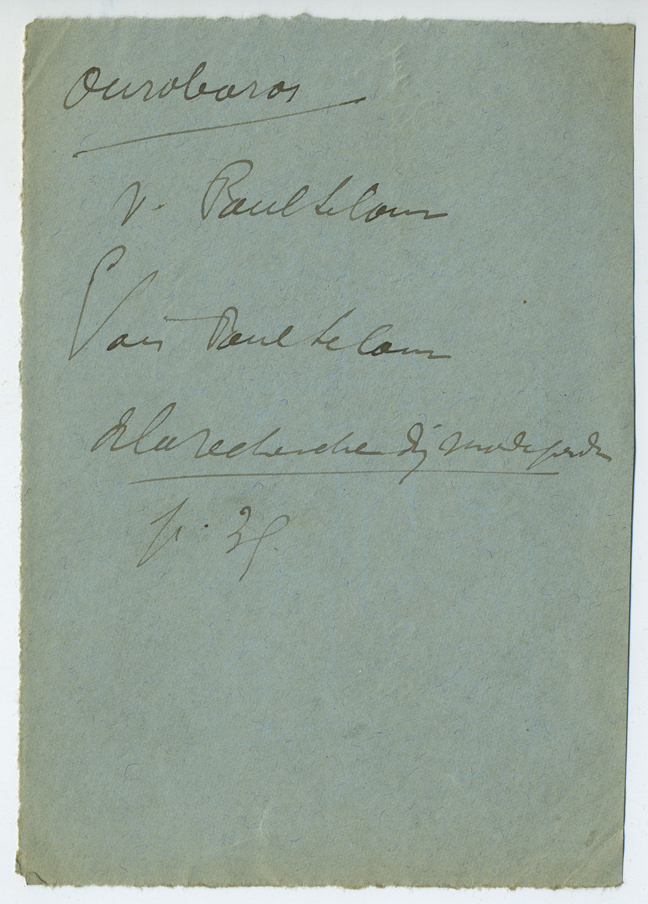 Ouroboros
v. Paul Le Cour
Voir Paul Le Cour
A la recherche d'1 monde perdu
p. 35